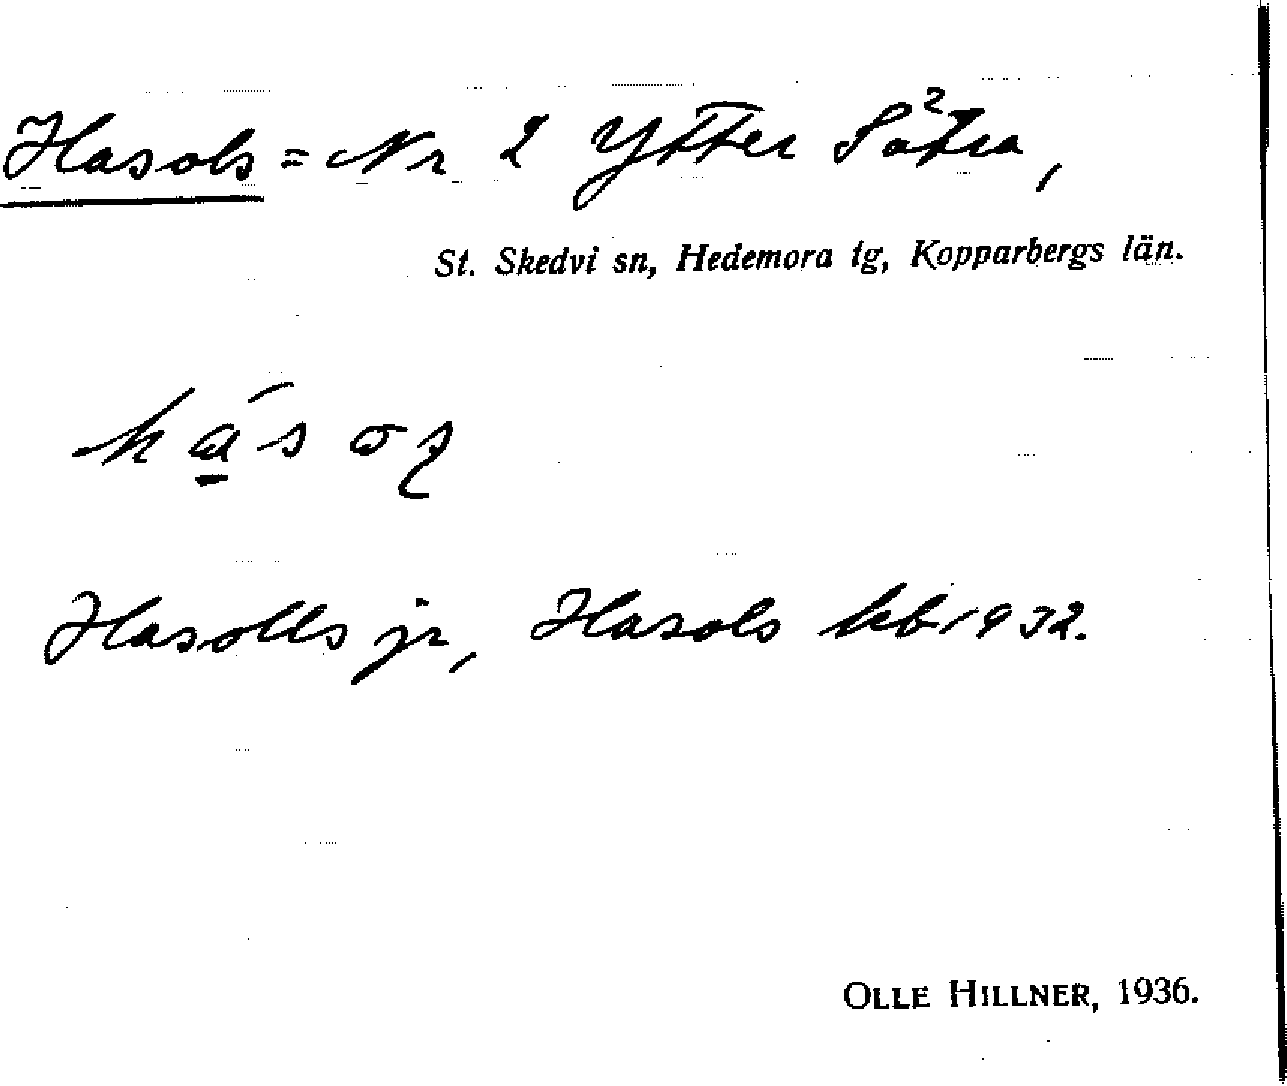 Hasols = Nr 2 Ytter Sätra,
St. Skedvi sn, Hedemora tg, Kopparbergs län.
Hasolls jr, Hasols kb 1932.
OLLE HILLNER, 1936.